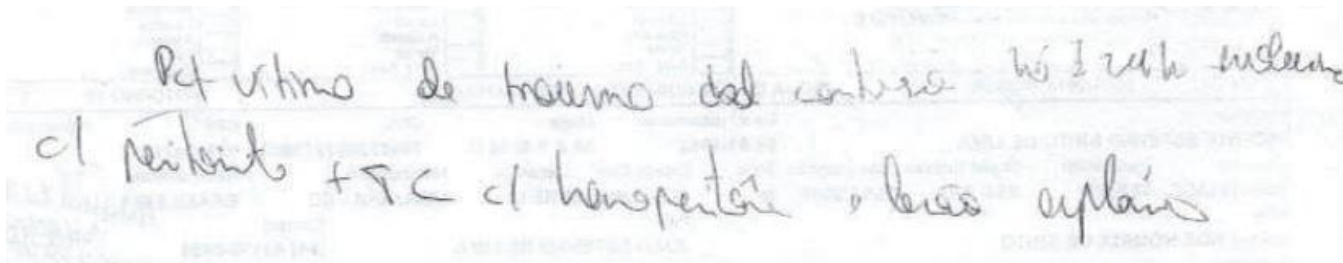 Pct vitima de trauma abd contuso há 1 evoluindo
c/ peritonite + TC c/ hemoperitônio e lesão esplênica